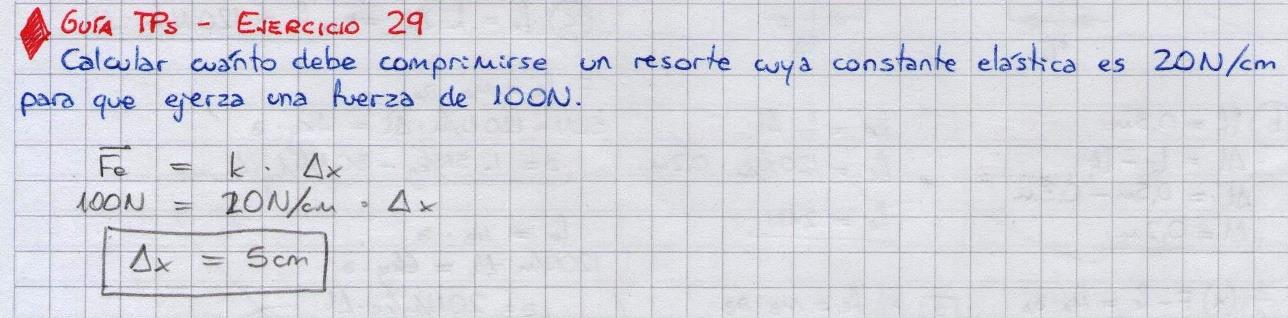 GUÍA TPs - EJERCICIO 29
Calcular cuánto debe comprimirse un resorte cuya constante elástica es 20N/cm
para que ejerza una fuerza de 100N.
Fe = k · Δx
100N = 20N/cm · Δx
Δx = 5cm